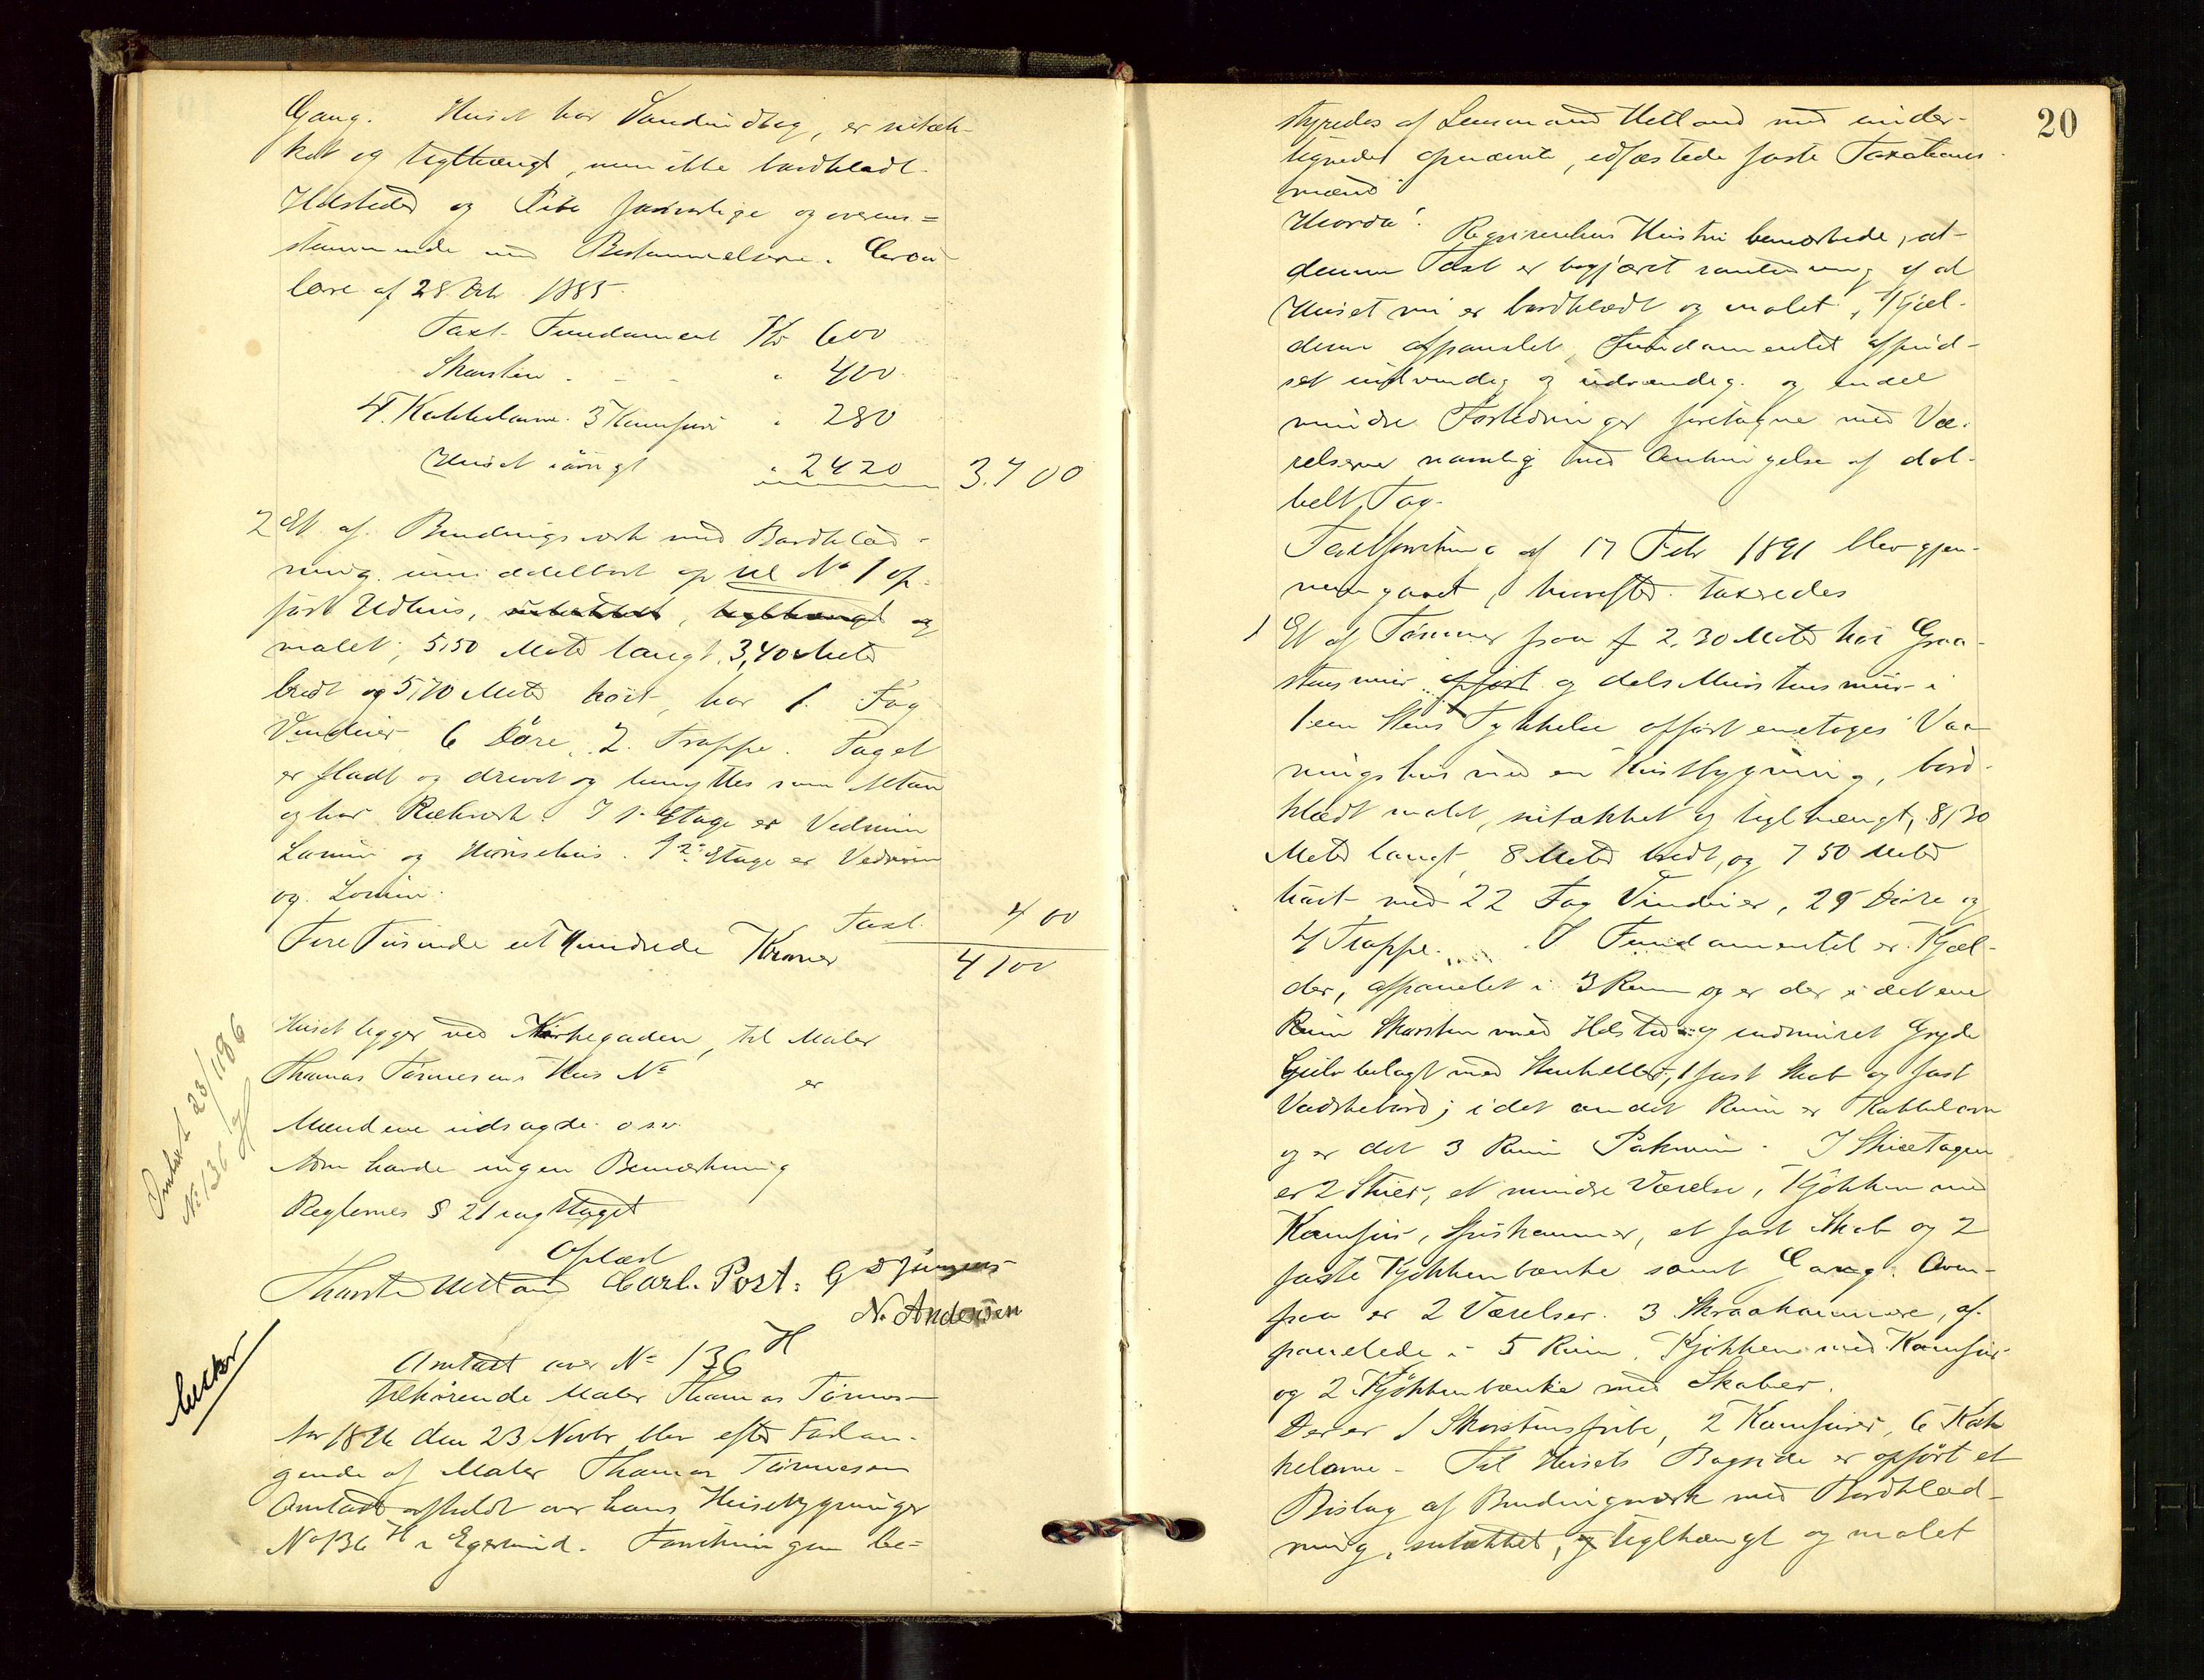 Gang. Huset har Vandindlæg, er sutæk-
ket og teglhængt, men ikke bordklædt.
Ildsteder og Pibe forsvarlige og overens=
stemmende med Bestemmelserne i Circu-
lære af 28 Oct. 1885.
Taxt. Fundament Kr 600
Skorsten " 400
4 Kakkelovne. 3 Komfure " 280
Huset iøvrigt " 2420 3.700
2 Et af Bindingsverk med Bordklæd-
ning umiddelbart op til No 1 op-
ført Udhus, og
malet, 5,50 Meter langt, 3,40 Meter
bredt og 5,70 Meter høit, har 1 Fag
Vinduer 6 Døre, 2 Trappe. Taget
er fladt og drevet og benyttes som Altan
og har Rækverk. I 1. Etage er Vedrum
Lorum og Hønsehus. I 2. Etage er Vedrum
og Lorum.
Taxt. 400
Fire Tusinde et Hundrede Kroner 4100
Huset ligger ved Kirkegaden, til Maler
Thomas Tønnesens Hus No er
Mændene udsagde o.s.v.
Som havde ingen Bemærkning
Reglernes § 21 iagttaget
Oplæst
Thorste Hetland Carl. Post. G D Jürgens
N. Andersen
Omtaxt 23/11 96
No 136 H
Omtaxt over No 136 H
tilhørende Maler Thomas Tønnes-
Aar 1896 den 23 Novbr blev efter Forlan-
gende af Maler Thomas Tønnesen
Omtaxt afholdt over hans Husebygninger
No 136 H i Egersund. Forretningen be=
20
styredes af Lensmand Hetland med under-
tegnede opnævnte, edfæstede faste Taxations-
mænd
Hvorda! Requirentens Hustru bemærkede, at
denne Taxt er begjæret i anledning af at
Huset nu er bordklædt og malet, Kjæl-
deren afpanelet, Fundamentet afpud-
set indvendig og udvendig og endel
mindre Forbedringer foretagne med Væ-
relserne namlig med Anbringelse af dob-
belt Tag.
Taxtforretning af 17 Febr 1891 blev gjen-
nemgaaet, hvorefter taxeredes
1 Et af Tømmer paa 2,30 Meter høi Graa-
stensmur og dels Murstensmur i
1 een Stens Tykkelse opført enetages Vaa-
ningshus med en Kvistbygning, bord-
klædt malet, sutækket og teglhængt, 8,30
Meter langt, 8 Meter bredt, og 7 50 Meter
høit med 22 Fag Vinduer, 29 Døre og
4 Trappe. I Fundamentet er Kjæl-
der, afpanelet i 3 Rum og er der i det ene
Rum Skorsten med Ildsted og indmuret Gryde
Gulv belagt med Stenheller, 1 fast Skab og fast
Vadskebord; i det andet Rum er Kakkelovn
og er det 3 Rum Pakrum. I Stueetagen
er 2 Stuer, et mindre Værelse, Kjøkken med
Komfur, Spiskammer, et fast Skab og 2
faste Kjøkkenbænke samt Gang. Oven-
paa er 2 Værelser. 3 Skraakammere, af-
panelede i 5 Rum, Kjøkken med Komfur
og 2 Kjøkkenbænke med Skaber.
Der er 1 Skorstenspibe, 2 Komfurer, 6 Kak-
kelovne. Til Husets Bagside er opført et
Bislag af Bindingsværk med Bordklæd-
ning, sutækket, teglhængt og malet